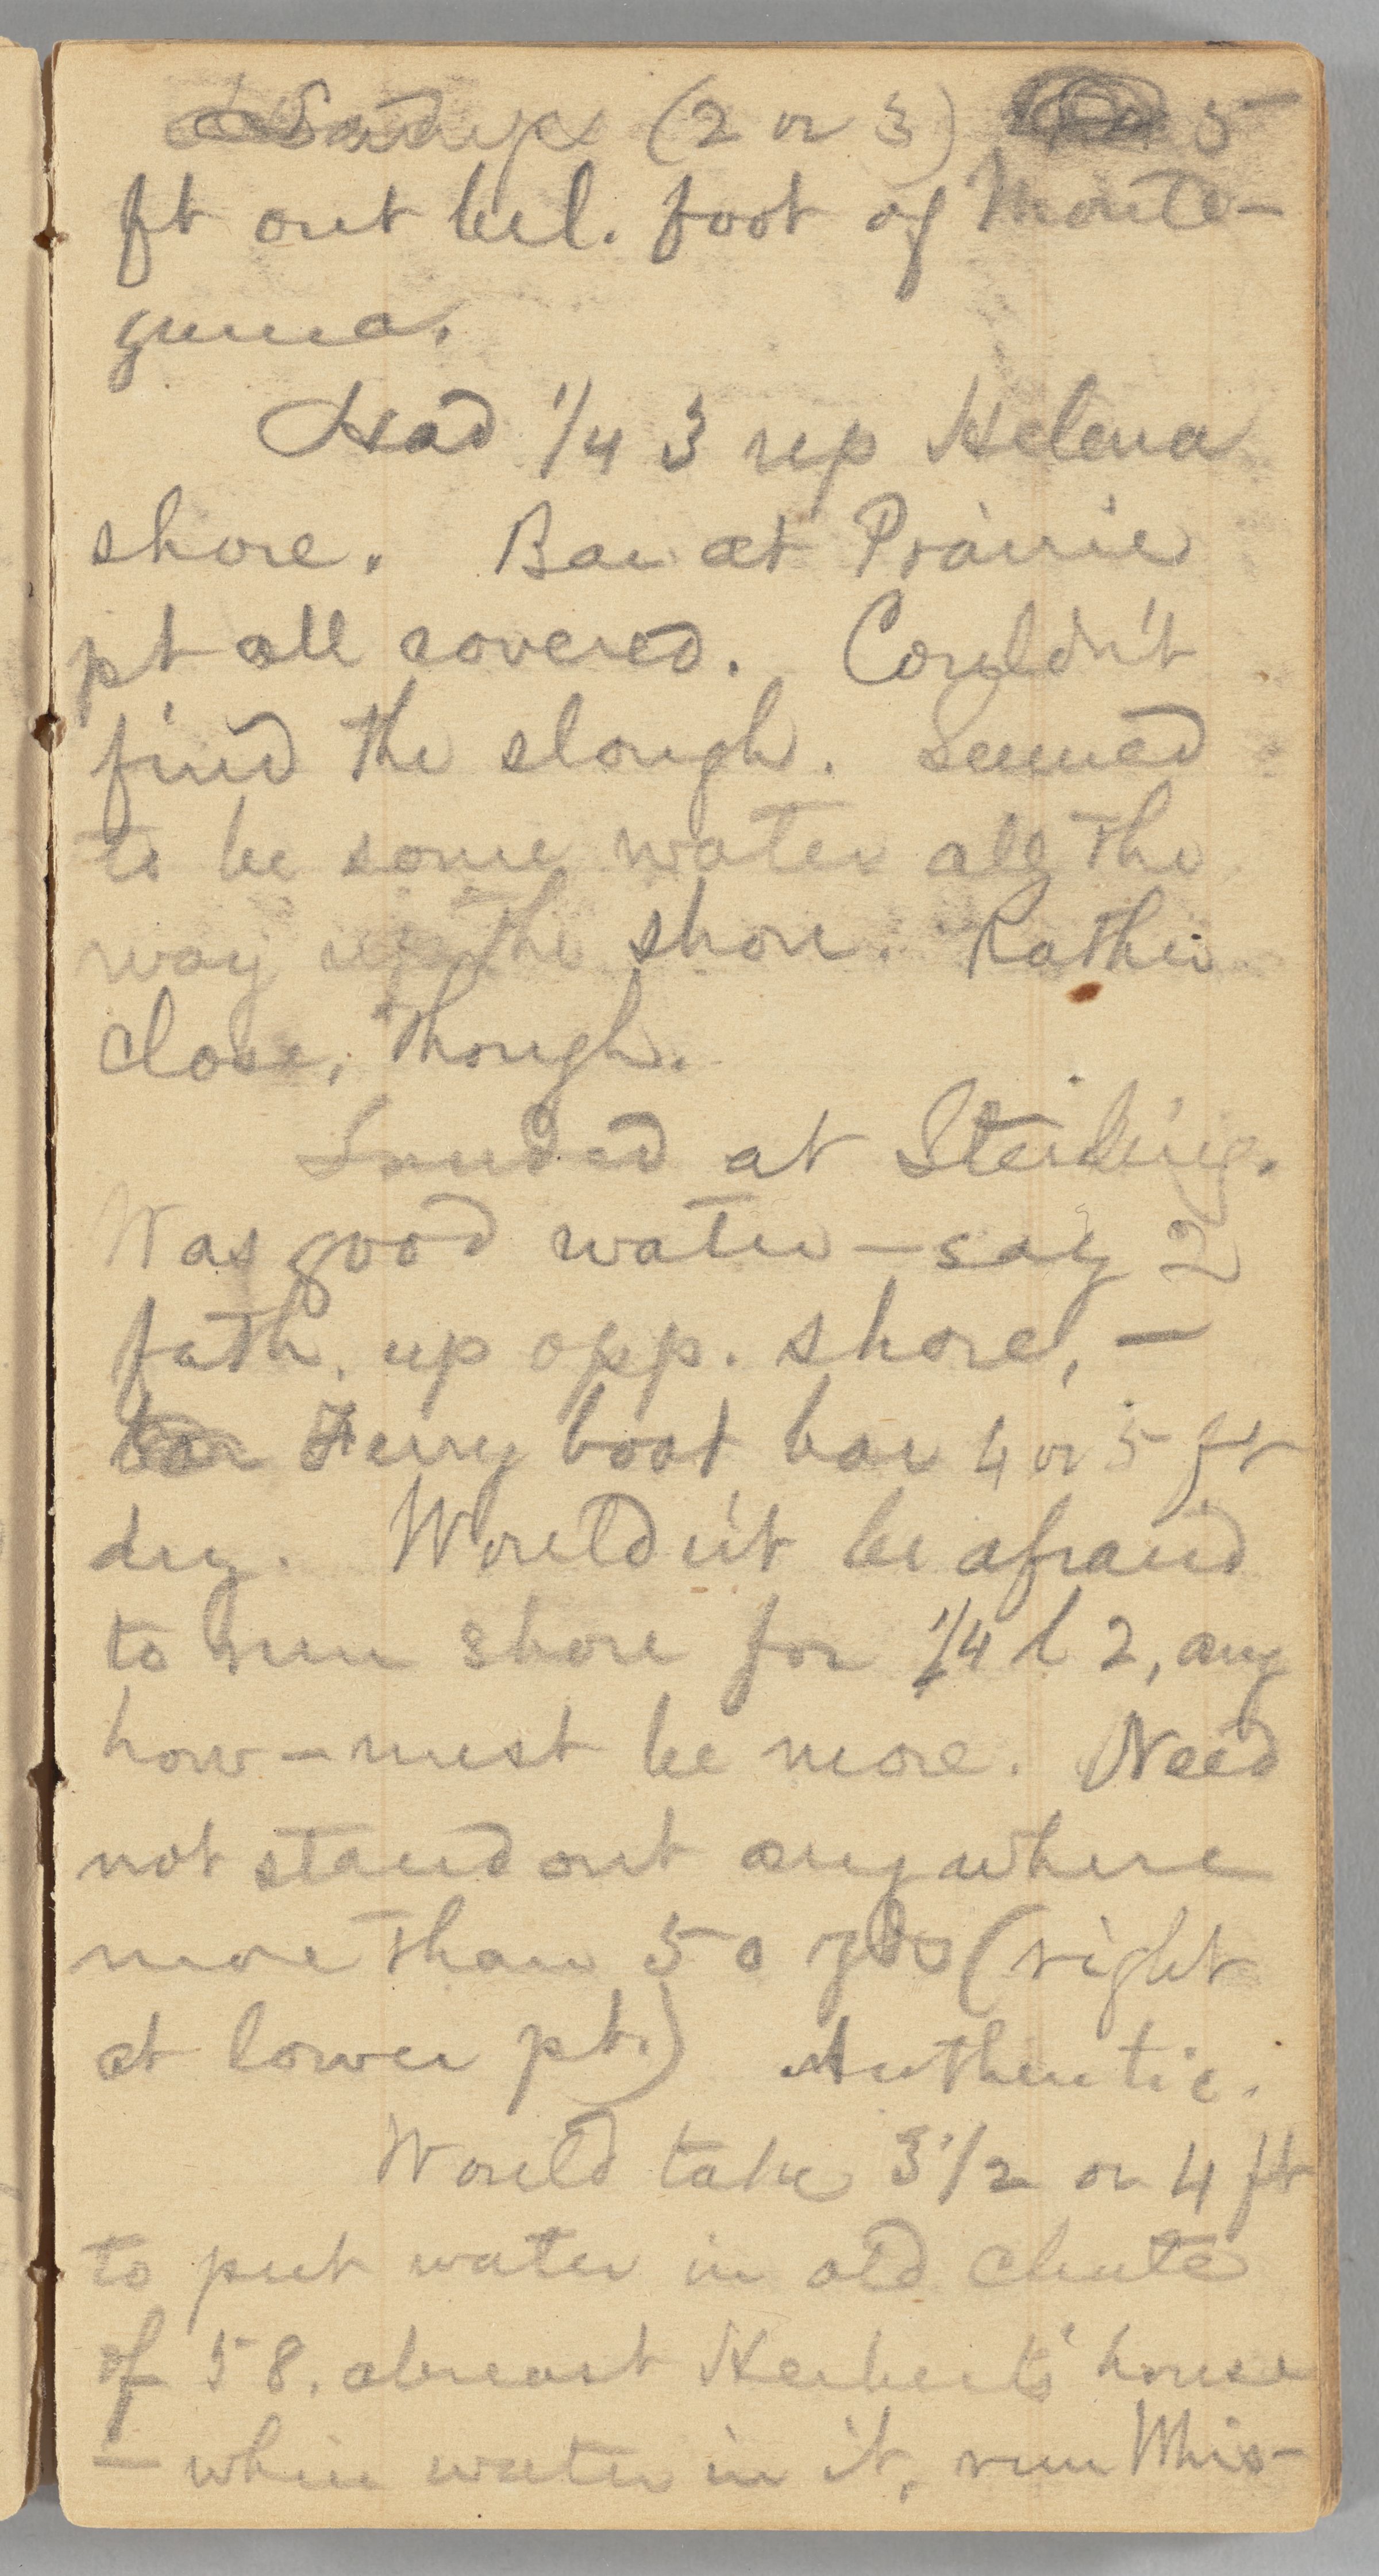 (2 or 3) 5
ft out bel. foot of Monte-
zuma.
Had 1/4 3 up Helena
shore. Bar at Prairie
pt all covered. Couldn't
find the slough. Seemed
to be some water all the
way up the shore. Rather
close, though.
Landed at Sterling.
Was good water — say 2
fath. up opp. shore, —
bar Ferry boat bar 4 or 5 ft
dry. Would n't be afraid
to run shore for 1/4 l 2, any
how — must be more. Need
not stand out anywhere
more than 50 yds (right
at lower pt.) Authentic.
Would take 3 1/2 or 4 ft
to put water in old chute
of '58. abreast Herbert's house
— when water in it, run Mis-